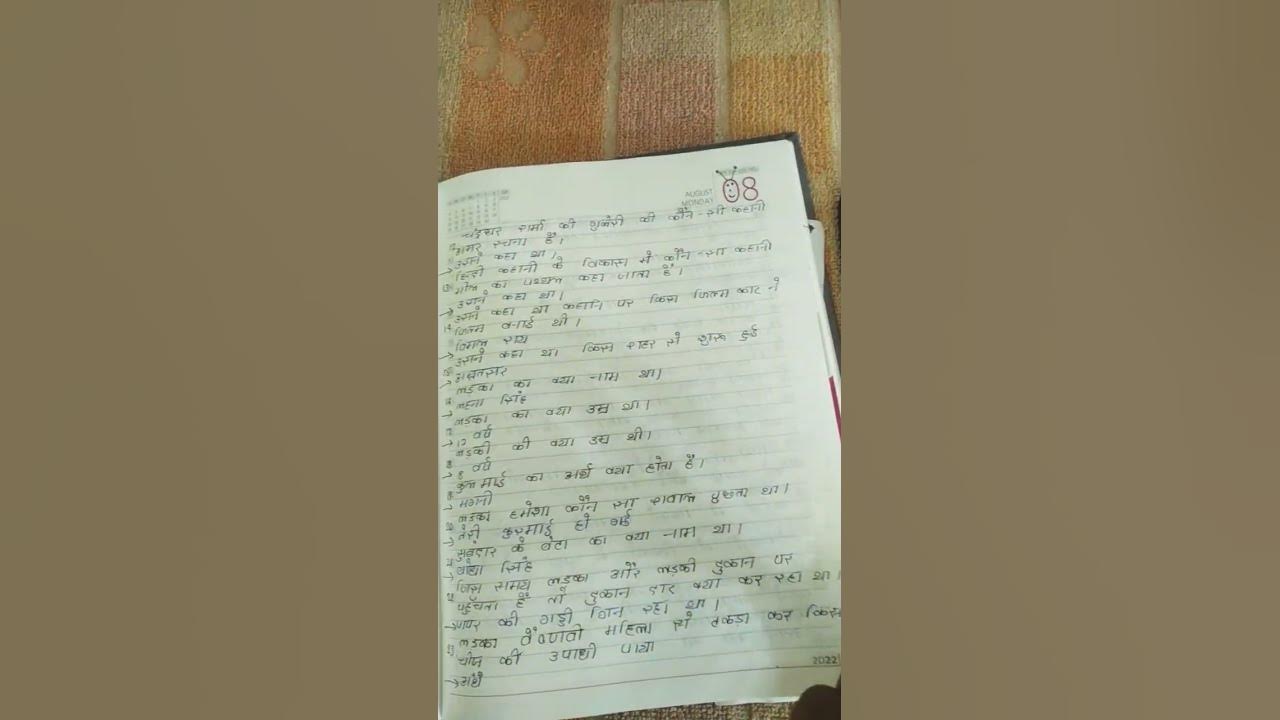 AUGUST
MONDAY
08
चंद्रधर शर्मा की गुलेरी की कौन-सी कहानी
अमर रचना है।
उसने कहा था।
हिन्दी कहानी के विकास मे कौन-सा कहानी
मील का पत्थल कहा जाता है।
→ उसने कहा था।
उसने कहा था कहानि पर किस फिल्म काट ने
14 फिल्म बनाई थी।
→ विमल राय
उसने कहा था किस शहर से शुरू हुई
→ अमृतसर
लड़का का क्या नाम था।
→ लहना सिंह
लड़का का क्या उम्र था।
→ 12 वर्ष
लड़की की क्या उम्र थी।
→ 8 वर्ष
कुलमाई का अर्थ क्या होता है।
→ मंगनी
लड़का हमेशा कौन सा शवाल पुछता था।
→ तेरी कुरमाई हो गई
सुबदार के बेटा का क्या नाम था।
→ बोधा सिंह
जिस समय लड़का और लड़की दुकान पर
पहुँचता है तो दुकान दार क्या कर रहा था।
→ पापर की गड्डी गिन रहा था।
लड़का वैष्णवी महिला से टकडा कर किस
चीज की उपाधी पाया
→ अंधे
2022